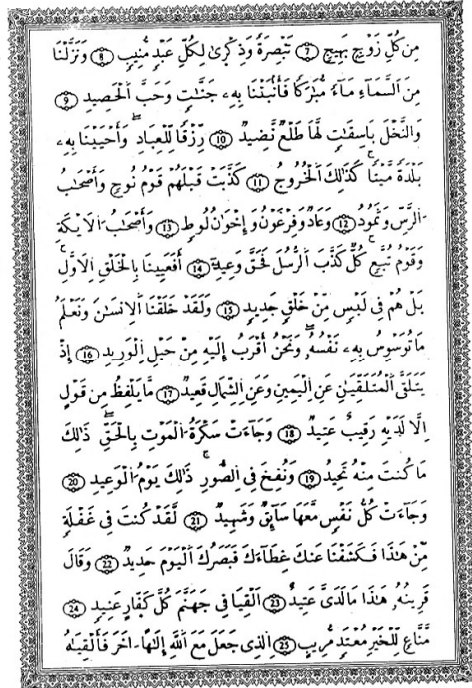 مِن كُلِّ زَوْجٍ بَهِيجٍ 7 تَبْصِرَةً وَذِكْرَىٰ لِكُلِّ عَبْدٍ مُّنِيبٍ 8 وَنَزَّلْنَا
مِنَ اَلسَّمَآءِ مَآءً مُّبَٰرَكًا فَأَنۢبَتْنَا بِهِۦ جَنَّٰتٍ وَحَبَّ اَلْحَصِيدِ 9
وَالنَّخْلَ بَاسِقَٰتٍ لَّهَا طَلْعٌ نَّضِيدٌ 10 رِزْقًا لِّلْعِبَادِ وَأَحْيَيْنَا بِهِۦ
بَلْدَةً مَّيْتًا كَذَٰلِكَ اَلْخُرُوجُ 11 كَذَّبَتْ قَبْلَهُمْ قَوْمُ نُوحٍ وَأَصْحَٰبُ
اَلرَّسِّ وَثَمُودُ 12 وَعَادٌ وَفِرْعَوْنُ وَإِخْوَٰنُ لُوطٍ 13 وَأَصْحَٰبُ اُلَايْكَةِ
وَقَوْمُ تُبَّعٍ كُلٌّ كَذَّبَ اَلرُّسُلَ فَحَقَّ وَعِيدِۦ 14 أَفَعَيِينَا بِالْخَلْقِ اِلَاوَّلِ
بَلْ هُمْ فِى لَبْسٍ مِّنْ خَلْقٍ جَدِيدٍ 15 وَلَقَدْ خَلَقْنَا اَلِانسَٰنَ وَنَعْلَمُ
مَا تُوَسْوِسُ بِهِۦ نَفْسُهُۥ وَنَحْنُ أَقْرَبُ إِلَيْهِ مِنْ حَبْلِ اِلْوَرِيدِ 16 إِذْ
يَتَلَقَّى اَلْمُتَلَقِّيَٰنِ عَنِ اِلْيَمِينِ وَعَنِ اِلشِّمَالِ قَعِيدٌ 17 مَّا يَلْفِظُ مِن قَوْلٍ
اِلَّا لَدَيْهِ رَقِيبٌ عَتِيدٌ 18 وَجَآءَتْ سَكْرَةُ اُلْمَوْتِ بِالْحَقِّ ذَٰلِكَ
مَا كُنتَ مِنْهُ تَحِيدُ 19 وَنُفِخَ فِى اِلصُّورِ ذَٰلِكَ يَوْمُ اُلْوَعِيدِ 20
وَجَآءَتْ كُلُّ نَفْسٍ مَّعَهَا سَآئِقٌ وَشَهِيدٌ 21 لَّقَدْ كُنتَ فِى غَفْلَةٍ
مِّنْ هَٰذَا فَكَشَفْنَا عَنكَ غِطَآءَكَ فَبَصَرُكَ اَلْيَوْمَ حَدِيدٌ 22 وَقَالَ
قَرِينُهُۥ هَٰذَا مَا لَدَىَّ عَتِيدٌ 23 اَلْقِيَا فِى جَهَنَّمَ كُلَّ كَفَّارٍ عَنِيدٍ 24
مَّنَّاعٍ لِّلْخَيْرِ مُعْتَدٍ مُّرِيبٍ 25 اِلَّذِى جَعَلَ مَعَ اَللَّهِ إِلَٰهًا اٰخَرَ فَأَلْقِيَٰهُ